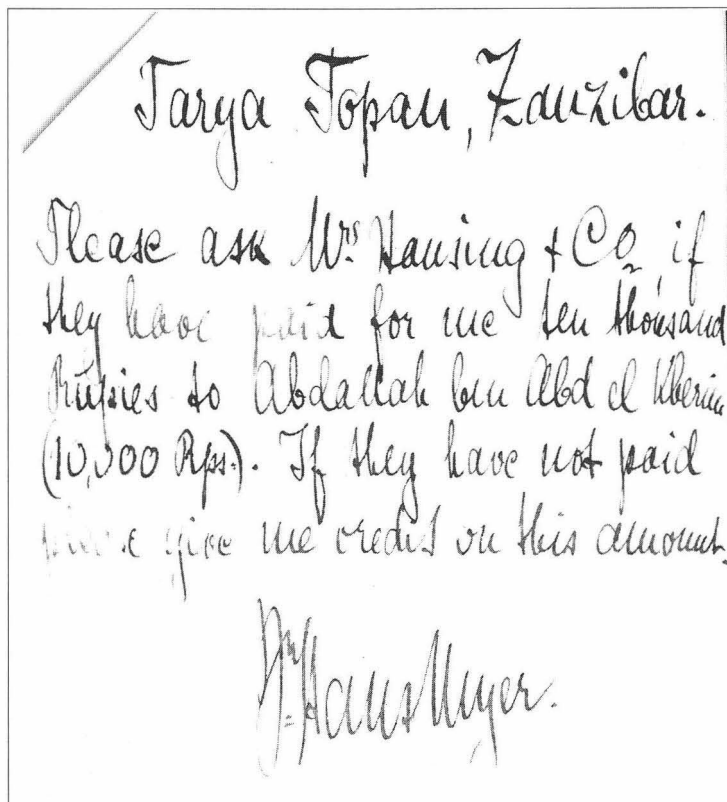 Tarya Topan, Zanzibar.
Please ask Mrs Hansing & Co, if
they have paid for me ten thousand
Rupies to Abdallah bin Abd el Kherim
(10,000 Rps.). If they have not paid
please give me credit on this amount.
Dr Hans Meyer.